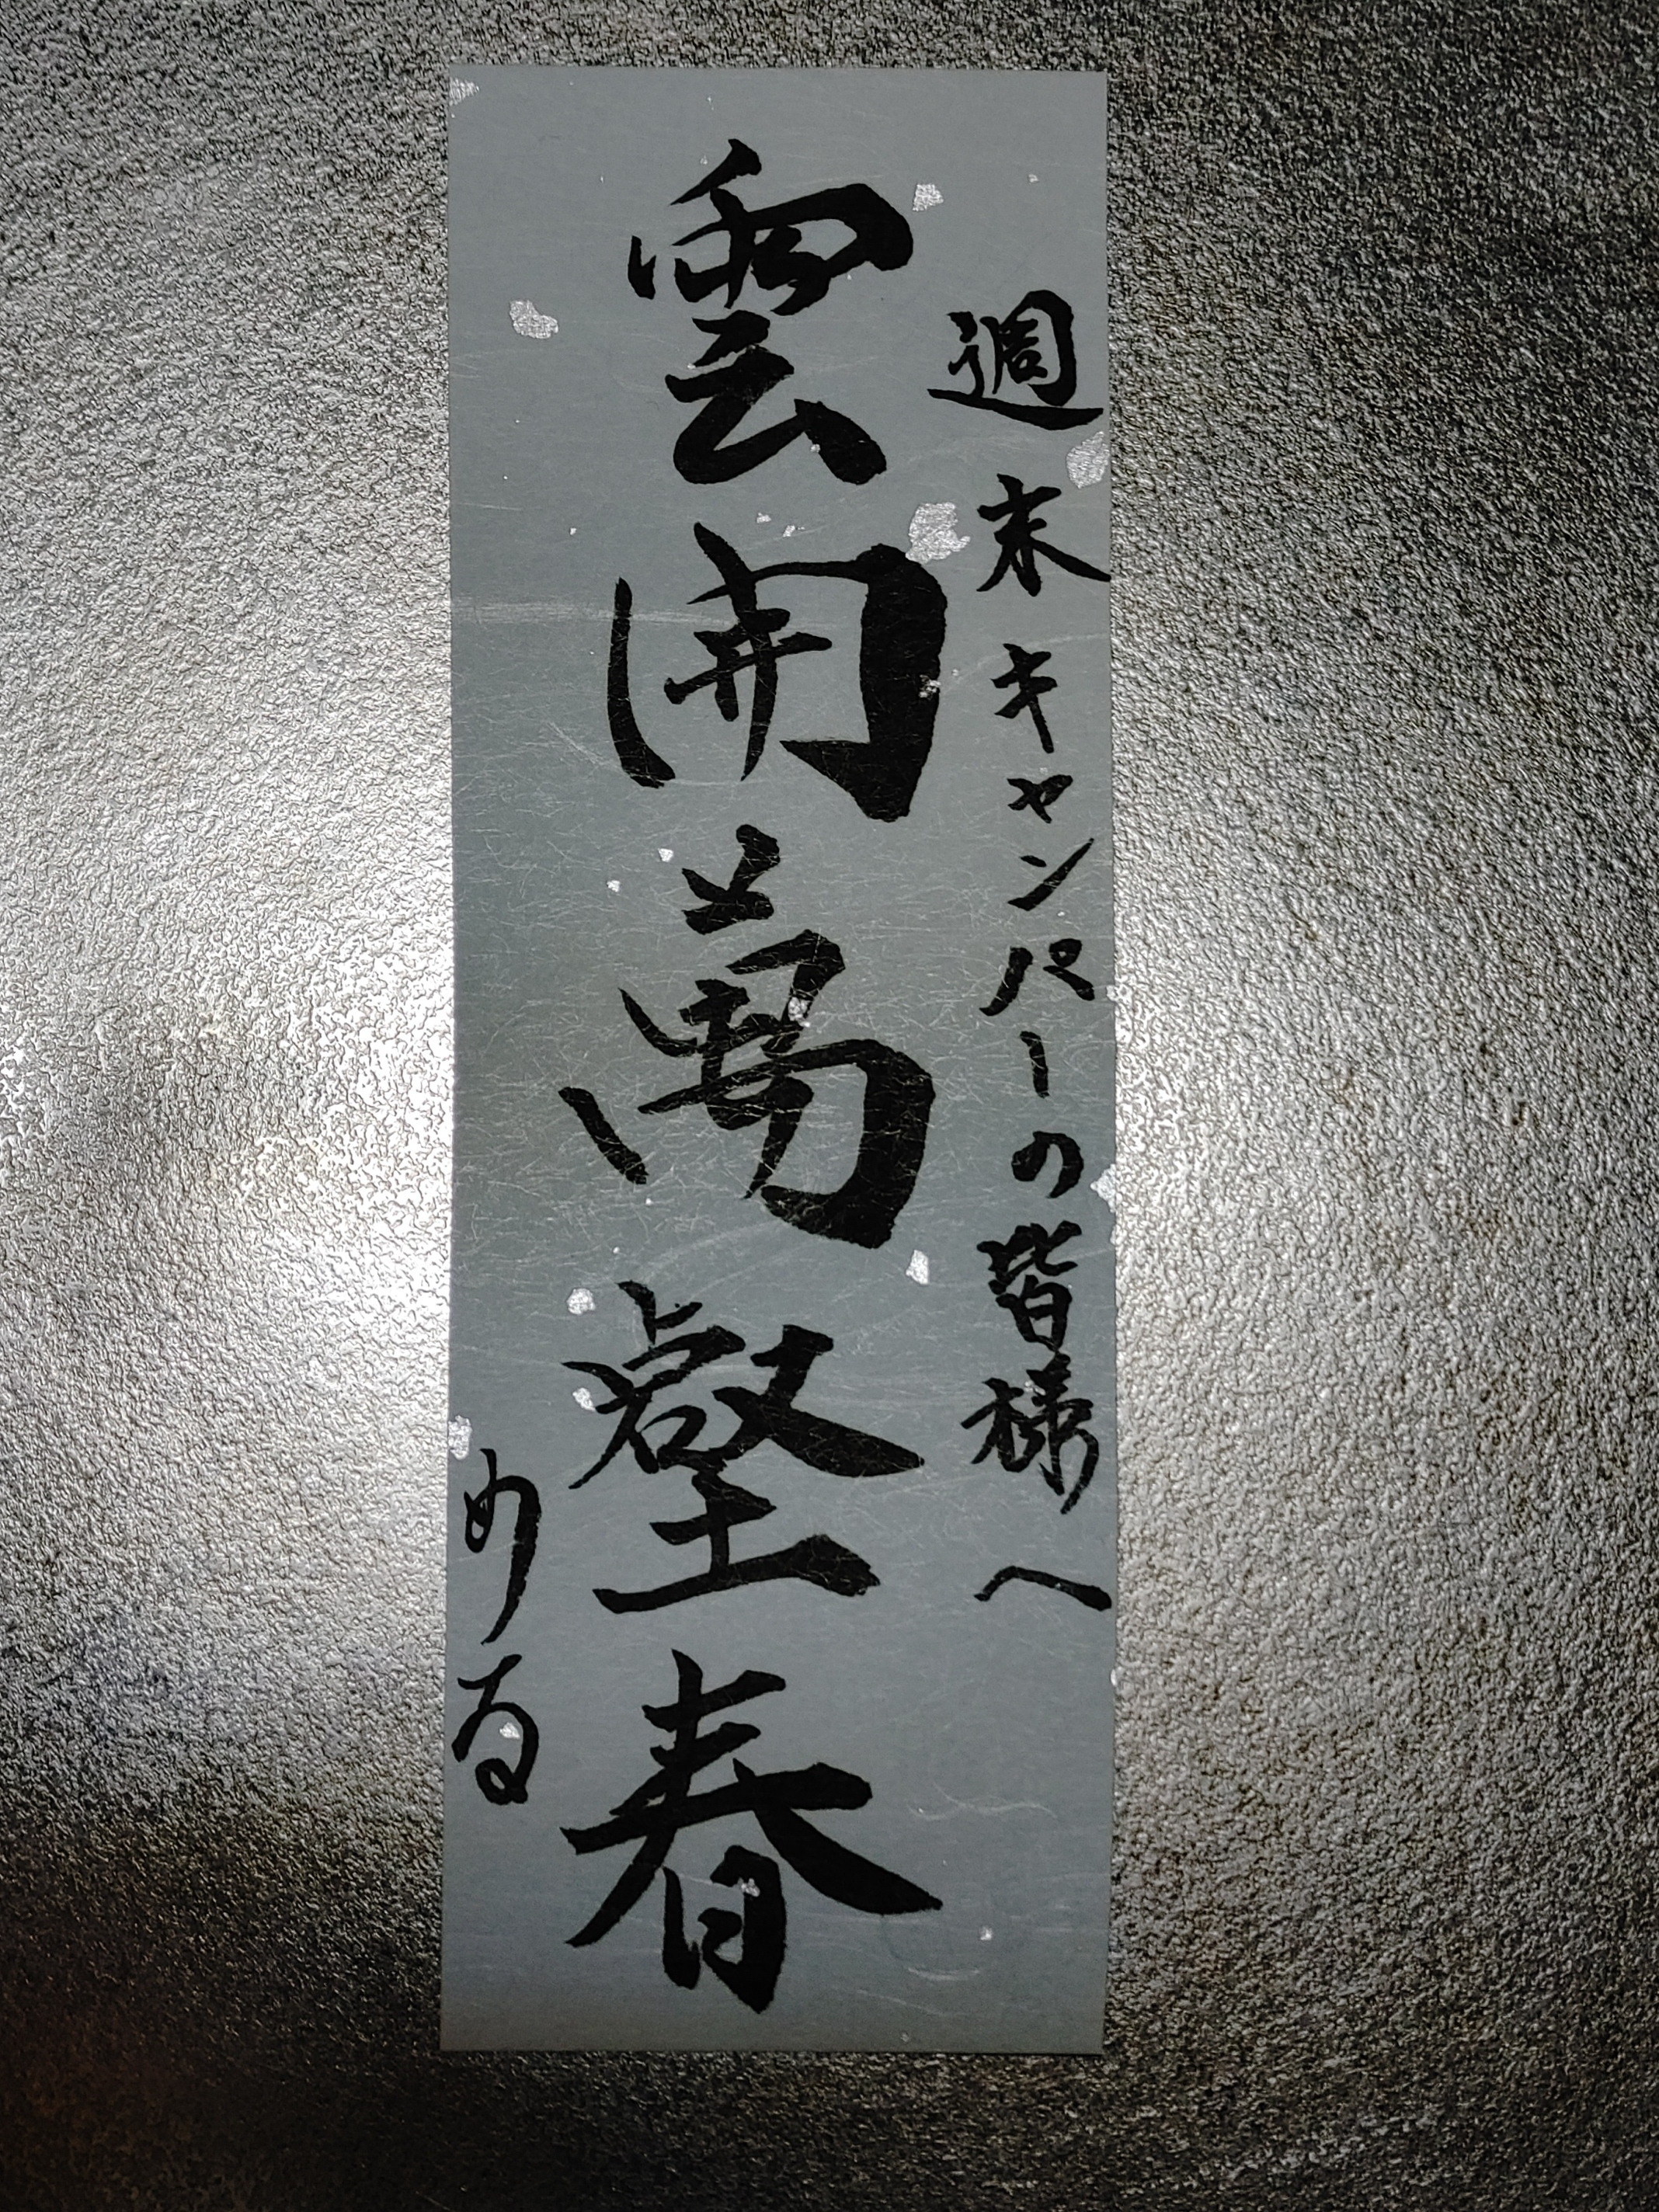 週末キャンパーの皆様へ
雲開萬壑春
める